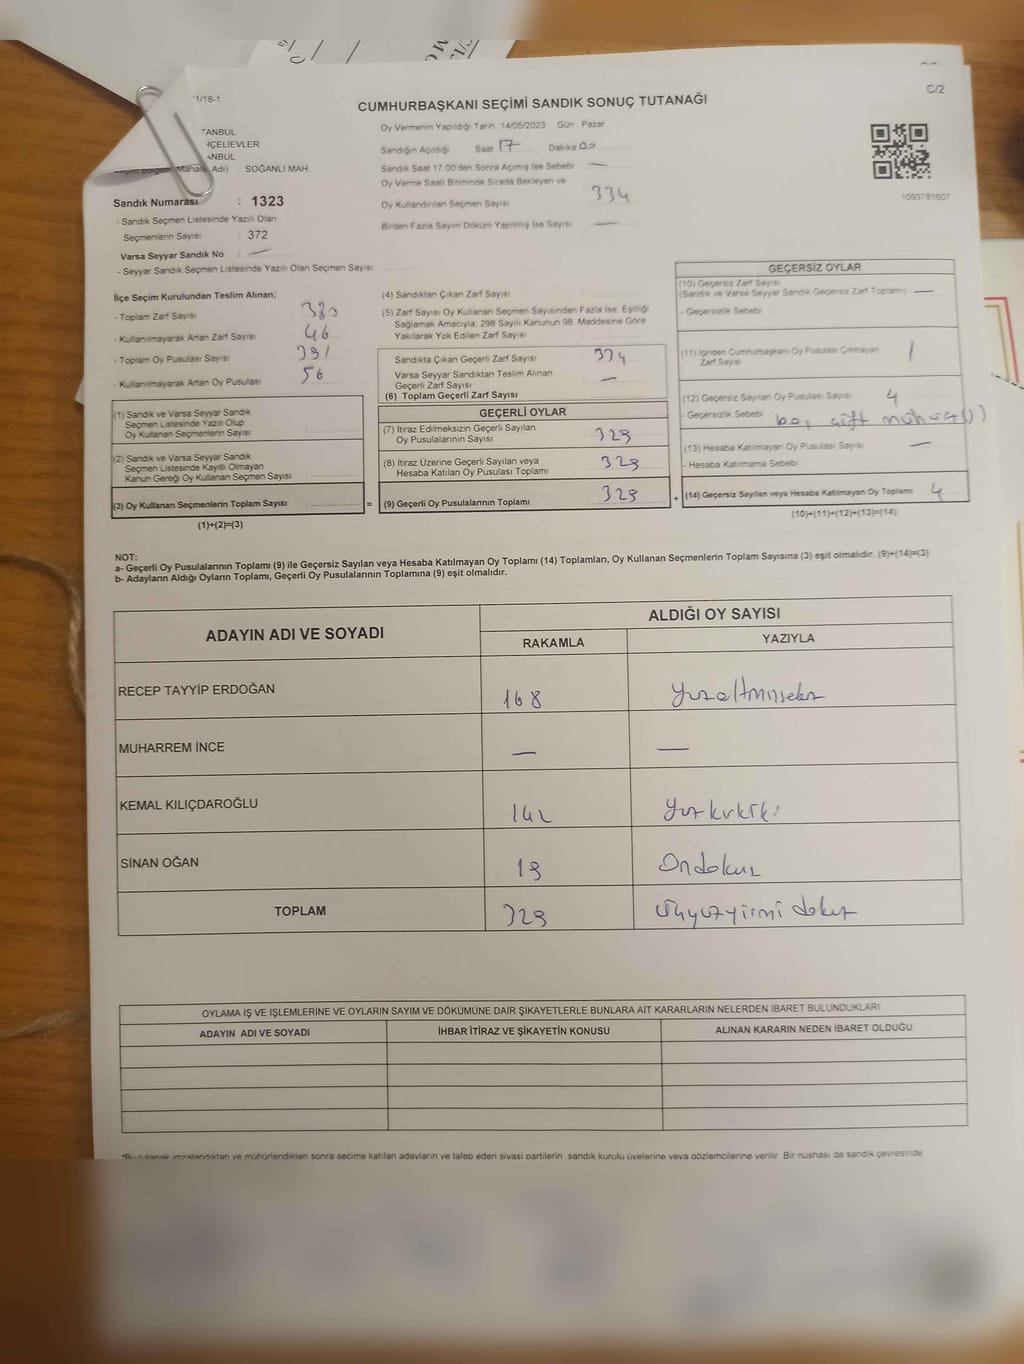 1/18-1
C/2
CUMHURBAŞKANI SEÇİMİ SANDIK SONUÇ TUTANAĞI
Oy Vermenin Yapıldığı Tarih : 14/05/2023 Gün : Pazar
Sandığın Açıldığı Saat 17 Dakika 00
Sandık Saat 17.00'den Sonra Açımış İse Sebebi —
Oy Verme Saati Bitiminde Sırada Bekleyen ve
Oy Kullandırılan Seçmen Sayısı 334
Birden Fazla Sayım Döküm Yapılmış İse Sayısı —
TANBUL
HÇELİEVLER
ANBUL
Mahalle Adı) SOĞANLI MAH.
1093781607
Sandık Numarası : 1323
- Sandık Seçmen Listesinde Yazılı Olan
Seçmenlerin Sayısı : 372
Varsa Seyyar Sandık No : —
- Seyyar Sandık Seçmen Listesinde Yazılı Olan Seçmen Sayısı:
İlçe Seçim Kurulundan Teslim Alınan;
- Toplam Zarf Sayısı 380
- Kullanılmayarak Artan Zarf Sayısı 46
- Toplam Oy Pusulası Sayısı 391
- Kullanılmayarak Artan Oy Pusulası 56
(1) Sandık ve Varsa Seyyar Sandık
Seçmen Listesinde Yazılı Olup
Oy Kullanan Seçmenlerin Sayısı
(2) Sandık ve Varsa Seyyar Sandık
Seçmen Listesinde Kayıtlı Olmayan
Kanun Gereği Oy Kullanan Seçmen Sayısı
(3) Oy Kullanan Seçmenlerin Toplam Sayısı =
(1)+(2)=(3)
(4) Sandıktan Çıkan Zarf Sayısı
(5) Zarf Sayısı Oy Kullanan Seçmen Sayısından Fazla İse, Eşitliği
Sağlamak Amacıyla; 298 Sayılı Kanunun 98. Maddesine Göre
Yakılarak Yok Edilen Zarf Sayısı
Sandıkta Çıkan Geçerli Zarf Sayısı 334
Varsa Seyyar Sandıktan Teslim Alınan
Geçerli Zarf Sayısı —
(6) Toplam Geçerli Zarf Sayısı
GEÇERLİ OYLAR
(7) İtiraz Edilmeksizin Geçerli Sayılan
Oy Pusulalarının Sayısı 329
(8) İtiraz Üzerine Geçerli Sayılan veya
Hesaba Katılan Oy Pusulası Toplamı 329
(9) Geçerli Oy Pusulalarının Toplamı 329 +
GEÇERSİZ OYLAR
(10) Geçersiz Zarf Sayısı
(Sandık ve Varsa Seyyar Sandık Geçersiz Zarf Toplamı) —
- Geçersizlik Sebebi
(11) İçinden Cumhurbaşkanı Oy Pusulası Çıkmayan
Zarf Sayısı 1
(12) Geçersiz Sayılan Oy Pusulası Sayısı 4
- Geçersizlik Sebebi boş, çift mühür
(13) Hesaba Katılmayan Oy Pusulası Sayısı —
- Hesaba Katılmama Sebebi
(14) Geçersiz Sayılan veya Hesaba Katılmayan Oy Toplamı 4
(10)+(11)+(12)+(13)=(14)
NOT:
a- Geçerli Oy Pusulalarının Toplamı (9) ile Geçersiz Sayılan veya Hesaba Katılmayan Oy Toplamı (14) Toplamları, Oy Kullanan Seçmenlerin Toplam Sayısına (3) eşit olmalıdır. (9)+(14)=(3)
b- Adayların Aldığı Oyların Toplamı, Geçerli Oy Pusulalarının Toplamına (9) eşit olmalıdır.
ADAYIN ADI VE SOYADI ALDIĞI OY SAYISI
RAKAMLA YAZIYLA
RECEP TAYYİP ERDOĞAN 168 Yüzaltmışsekiz
MUHARREM İNCE — —
KEMAL KILIÇDAROĞLU 142 Yüzkırkiki
SİNAN OĞAN 19 Ondokuz
TOPLAM 329 üçyüzyirmi dokuz
OYLAMA İŞ VE İŞLEMLERİNE VE OYLARIN SAYIM VE DÖKÜMÜNE DAİR ŞİKAYETLERLE BUNLARA AİT KARARLARIN NELERDEN İBARET BULUNDUKLARI
ADAYIN ADI VE SOYADI İHBAR İTİRAZ VE ŞİKAYETİN KONUSU ALINAN KARARIN NEDEN İBARET OLDUĞU
*Bu tutanak imzalandıktan ve mühürlendikten sonra seçime katılan adayların ve talep eden siyasi partilerin sandık kurulu üyelerine veya gözlemcilerine verilir. Bir nüshası da sandık çevresinde